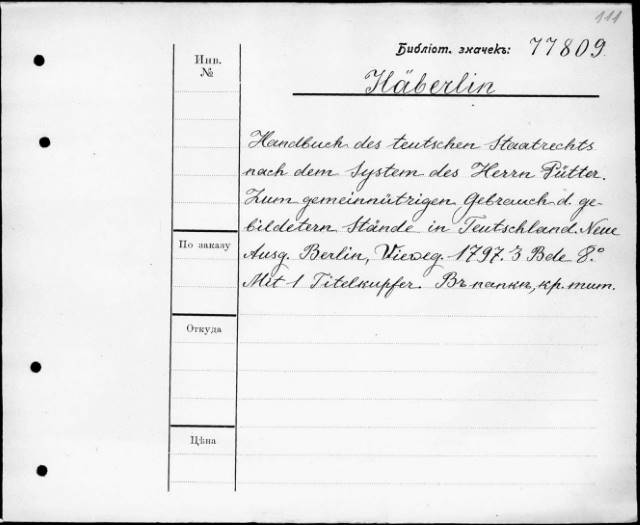 111
Библіот. значекъ: 77809.
Инв.
№
Häberlin
Handbuch des teutschen Staatrechts
nach dem System des Herrn Pütter.
Zum gemeinnützigen Gebrauch d. ge-
bildetern Stände in Teutschland. Neue
Ausg. Berlin, Vieweg. 1797. 3 Bde 8.º
Mit 1 Titelkupfer. Въ папкѣ, кр. тит.
По заказу
Откуда
Цѣна